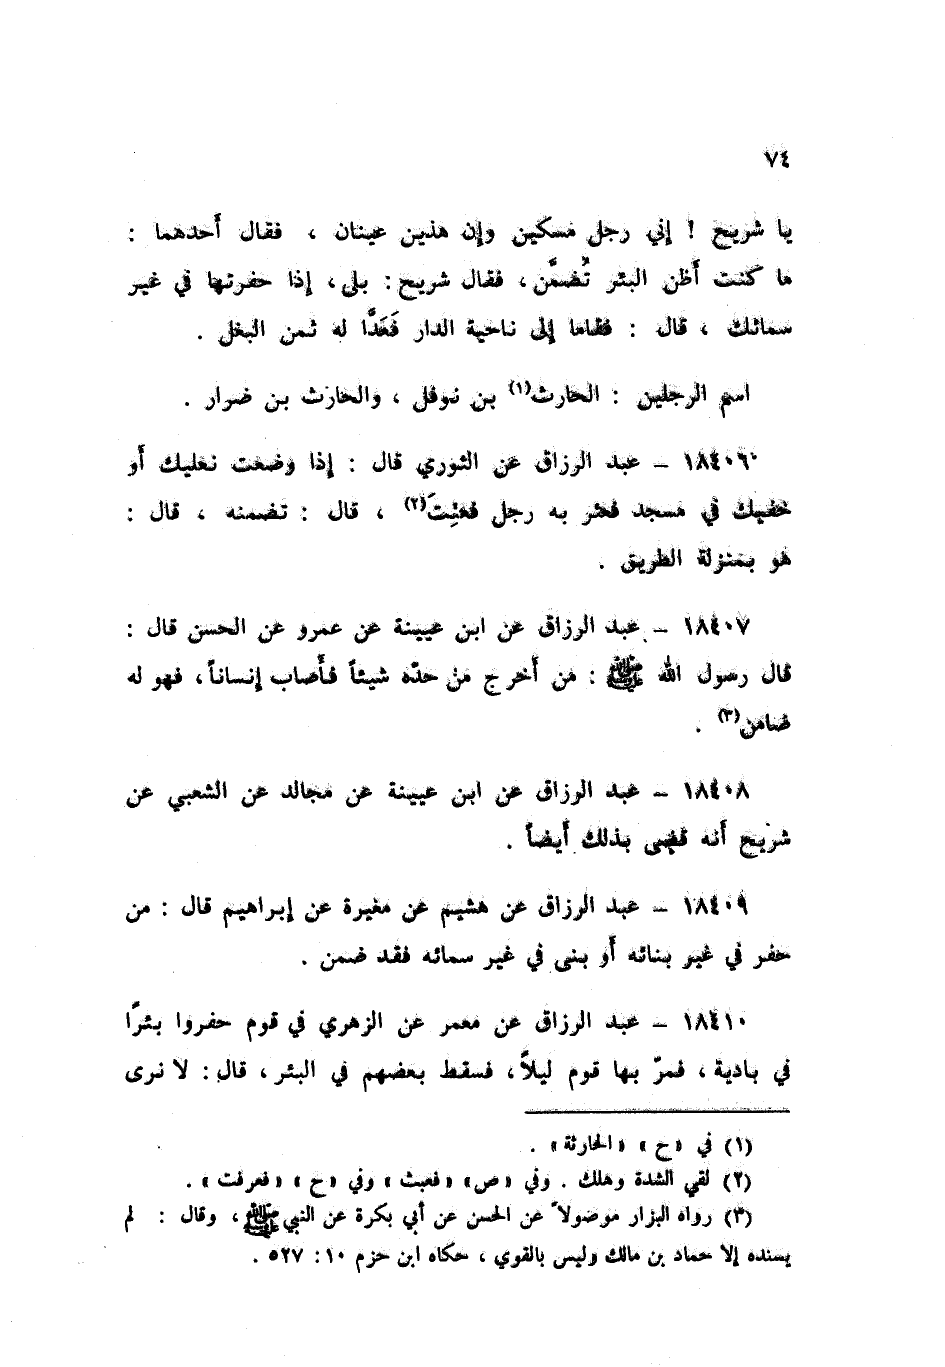 ٧٤
يا شريح ! إني رجل مسكين وإن هذين عينان ، فقال أحدهما :
ما كنت أظن البئر تُضمَّن ، فقال شريح : بلى ، إذا حفرتها في غير
سمائك ، قال : فقاما إلى ناحية الدار فَعَدَّا له ثمن البغل .
اسم الرجلين : الحارث(١) بن نوفل ، والحارث بن ضرار .
١٨٤٠٦ – عبد الرزاق عن الثوري قال : إذا وضعت نعليك أو
خفيك في مسجد فعثر به رجل فعَنِتَ(٢) ، قال : تضمنه ، قال :
هو بمنزلة الطريق .
١٨٤٠٧ – عبد الرزاق عن ابن عيينة عن عمرو عن الحسن قال :
قال رسول الله ﷺ : من أخرج من حدّه شيئاً فأصاب إنساناً ، فهو له
ضامن(٣) .
١٨٤٠٨ – عبد الرزاق عن ابن عيينة عن مجالد عن الشعبي عن
شريح أنه قضى بذلك أيضاً .
١٨٤٠٩ – عبد الرزاق عن هشيم عن مغيرة عن إبراهيم قال : من
حفر في غير بنائه أو بنى في غير سمائه فقد ضمن .
١٨٤١٠ – عبد الرزاق عن معمر عن الزهري في قوم حفروا بئرًا
في بادية ، فمرّ بها قوم ليلاً ، فسقط بعضهم في البئر ، قال : لا نرى
(١) في «ح» «الحارثة» .
(٢) لقي الشدة وهلك . وفي «ص» «فعبث» وفي «ح» «فعرفت» .
(٣) رواه البزار موصولاً عن الحسن عن أبي بكرة عن النبي ﷺ ، وقال : لم
يسنده إلا حماد بن مالك وليس بالقوي ، حكاه ابن حزم ١٠ : ٥٢٧ .